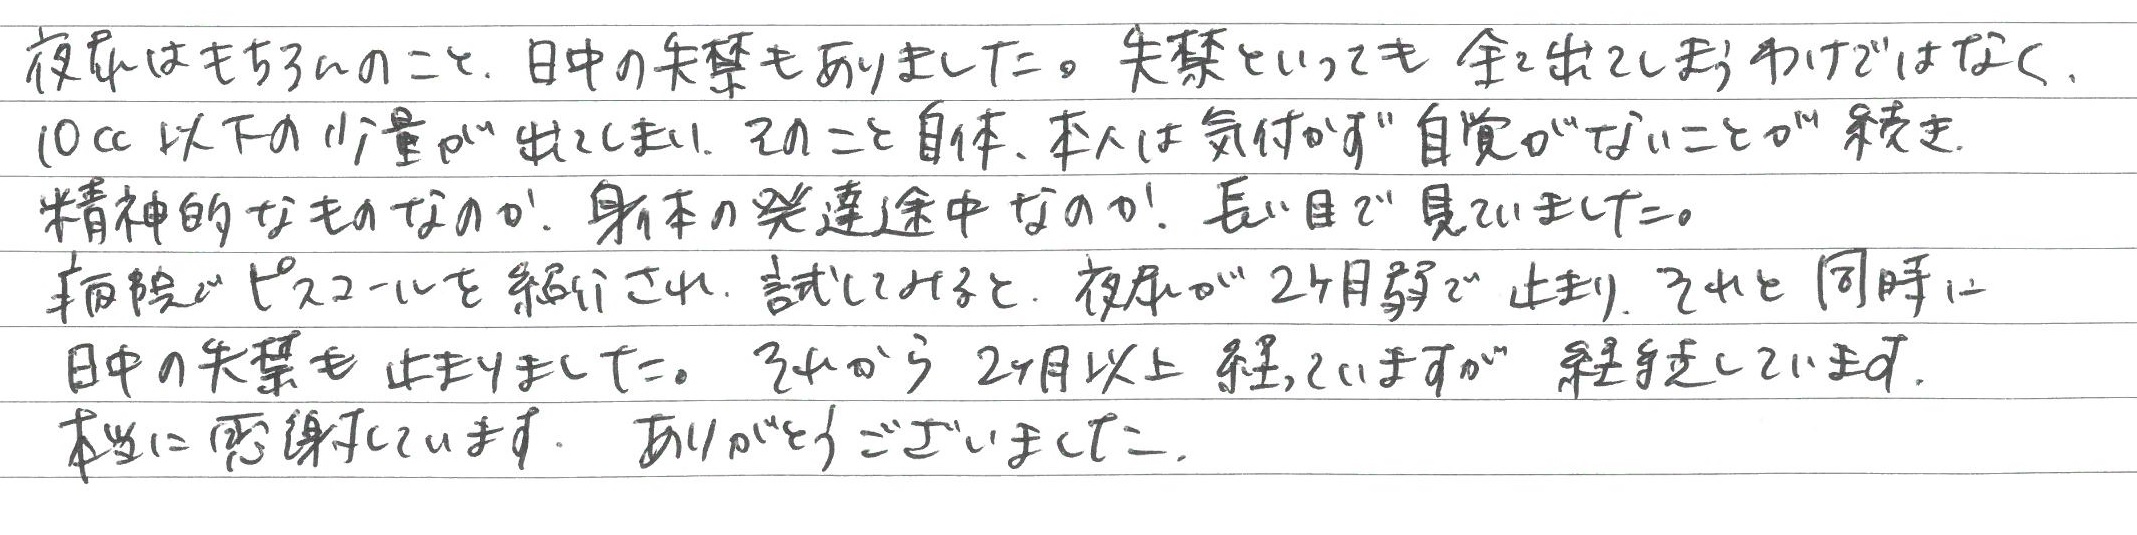 夜尿はもちろんのこと、日中の失禁もありました。失禁といっても全て出てしまうわけではなく、
10cc以下の少量が出てしまい、そのこと自体、本人は気付かず自覚がないことが続き、
精神的なものなのか、身体の発達途中なのか、長い目で見ていました。
病院でピスコールを紹介され、試してみると、夜尿が2ヶ月弱で止まり、それと同時に
日中の失禁も止まりました。それから2ヶ月以上経っていますが継続しています。
本当に感謝しています。ありがとうございました。